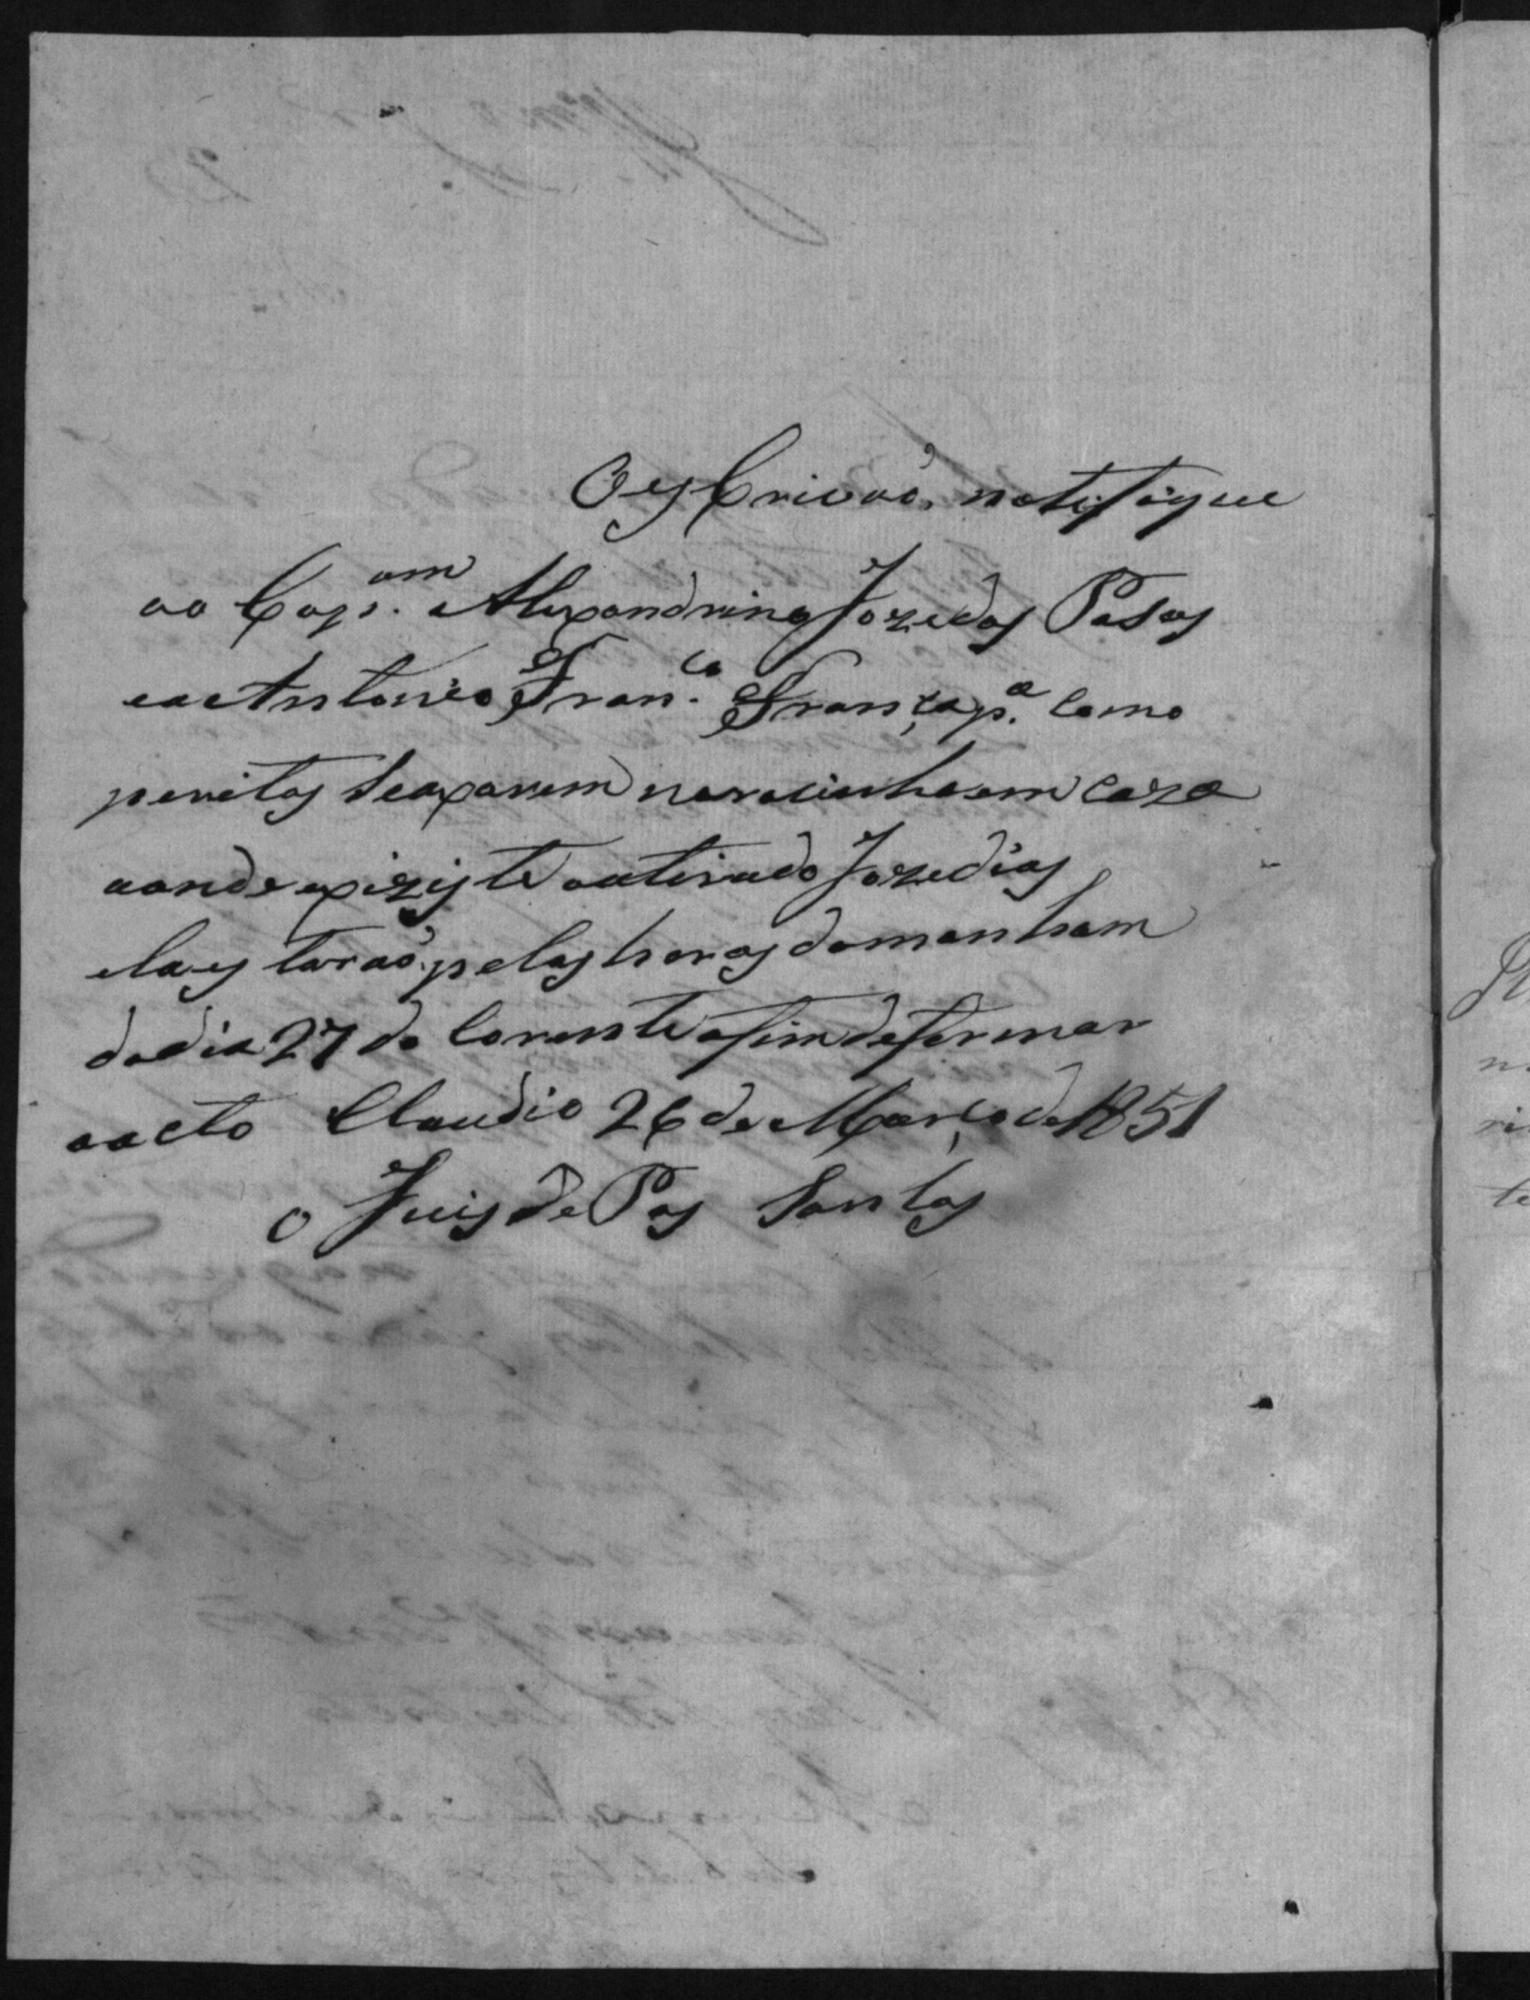 O esCrivaõ, notifique
ao Cap.am Alexandrino Joze dos Pasos
e a Antonio Fran.co França p.a como
peritos se axarem na rocinha em caza
aonde exziste o atirado Joze dias
e la estaraõ pelas horas da manham
do dia 27 do Corente afim de formar
o acto Claudio 26 de Março de 1851
o Juis de Pas Santos